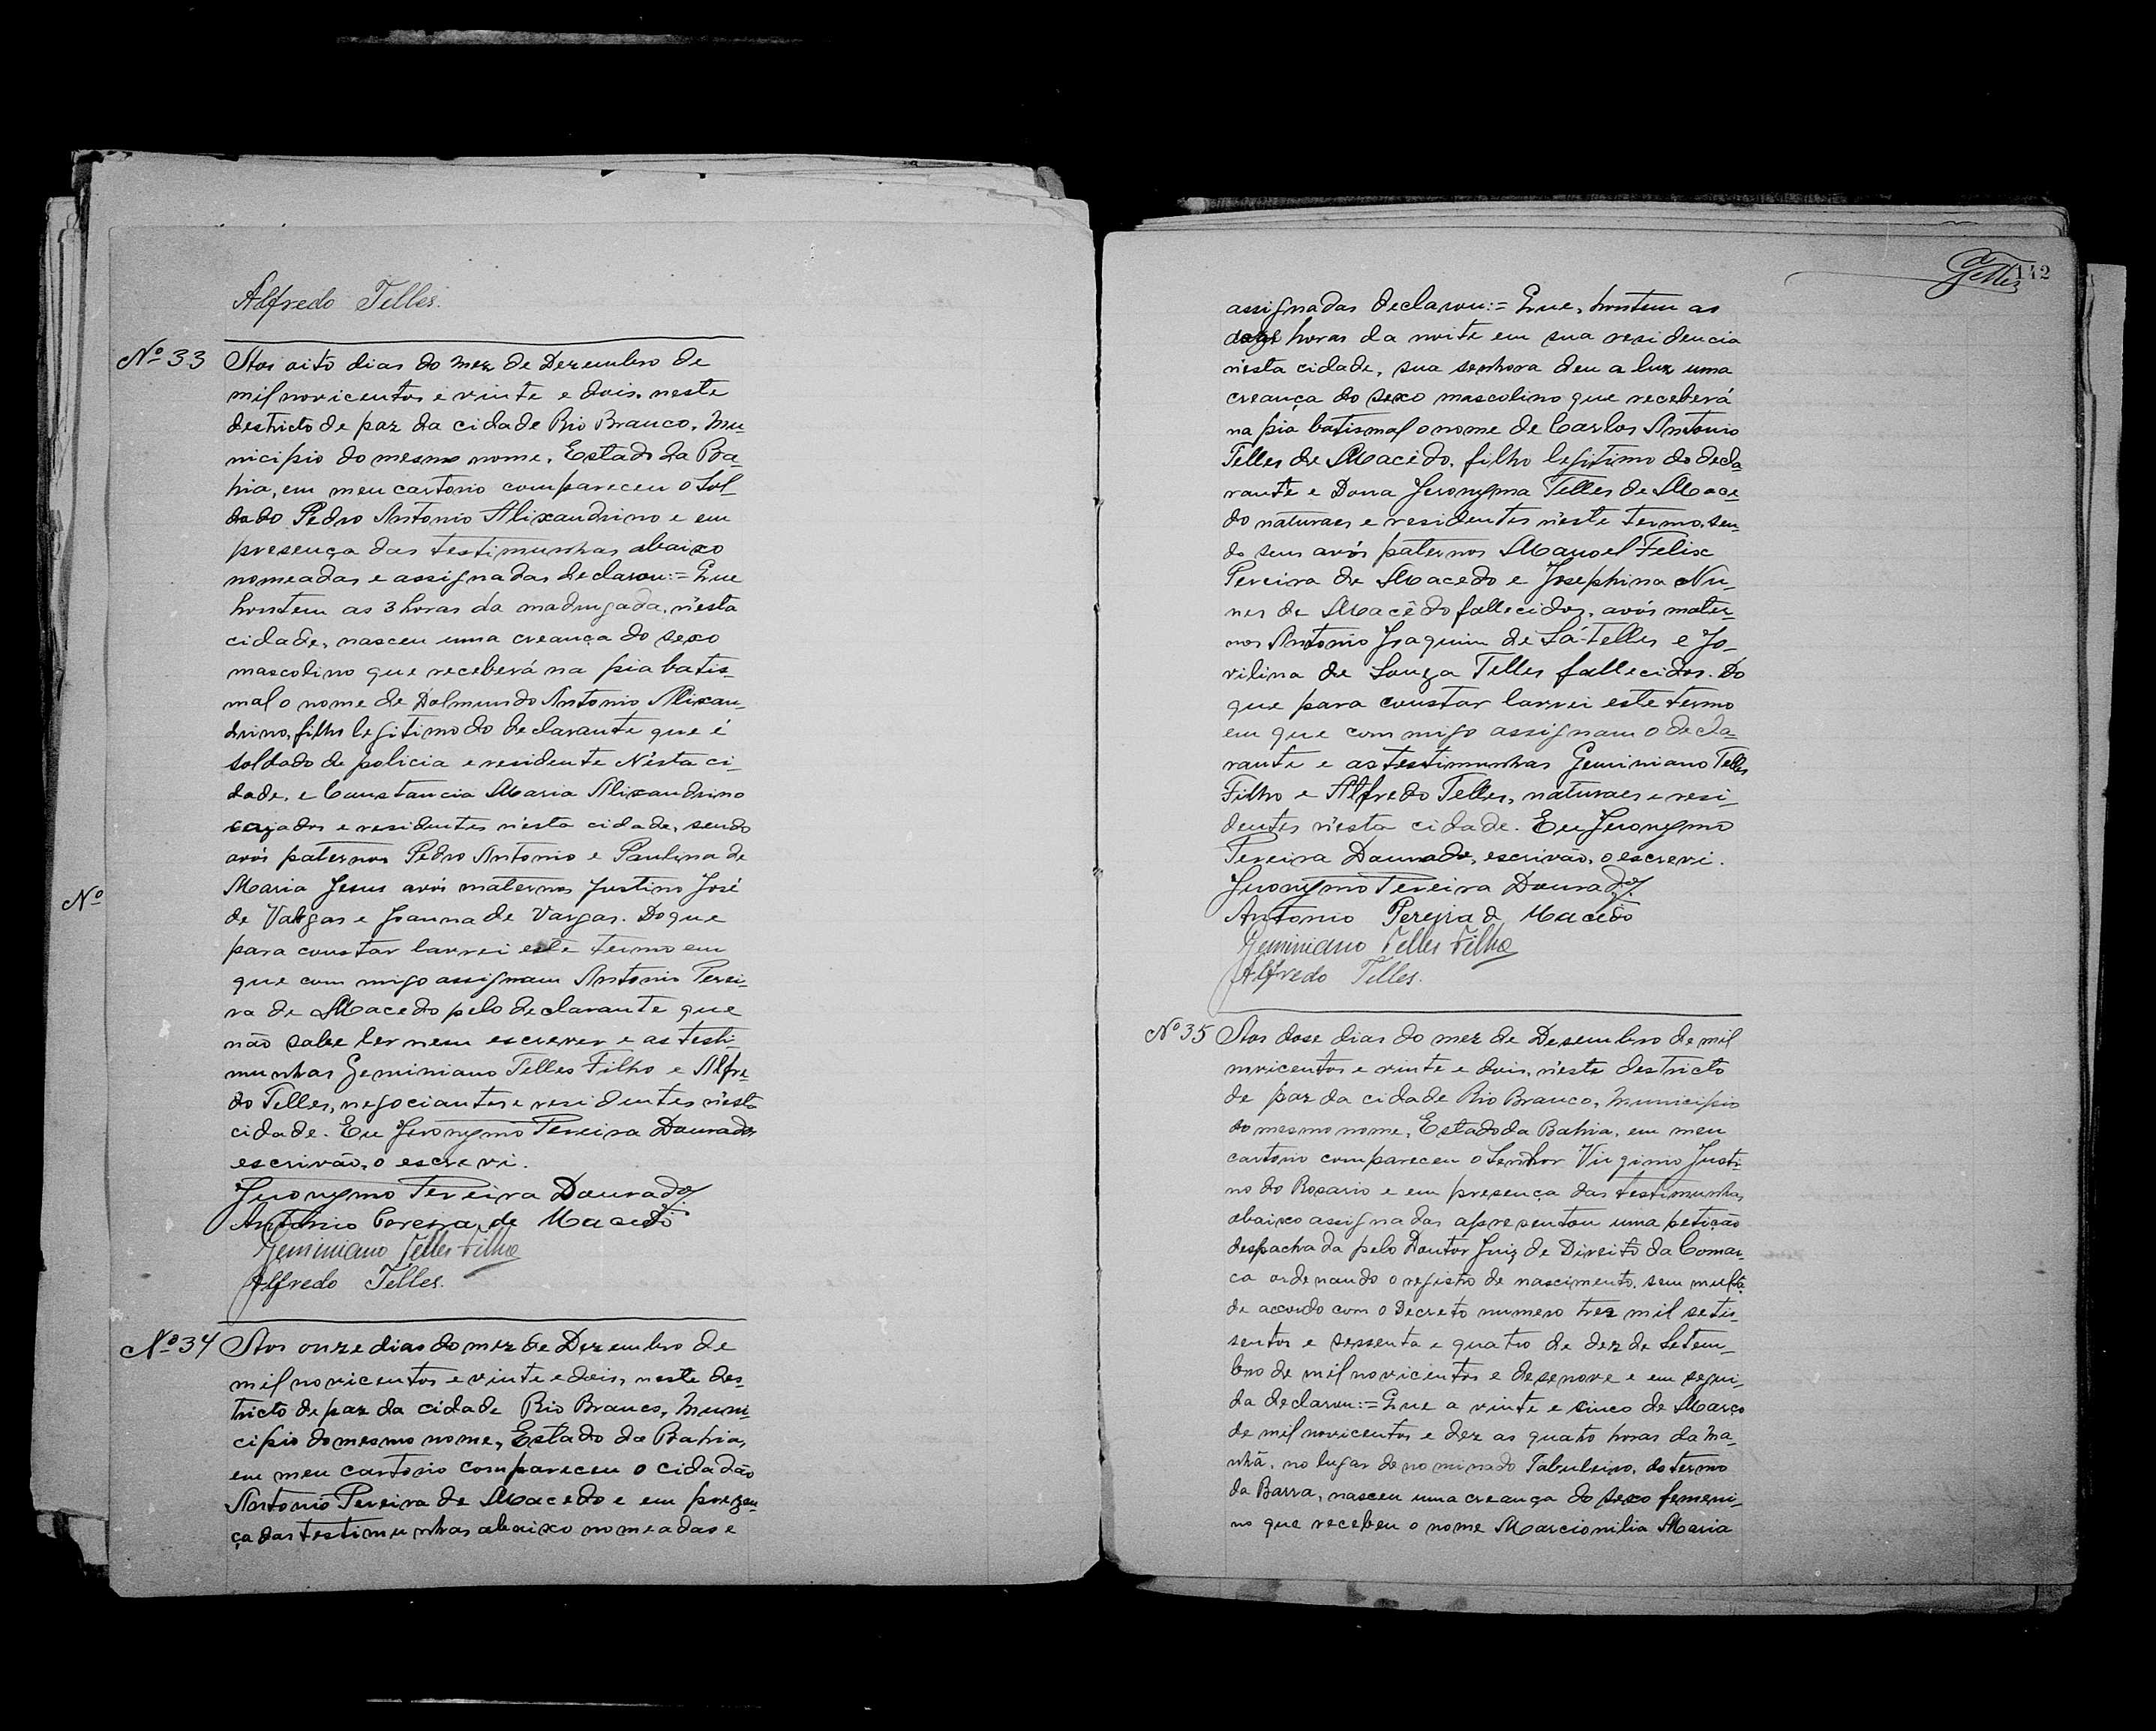 Alfredo Telles.
Nº 33 Aos oito dias do mez de Dezembro de
mil novicentos e vinte e dois, neste
destricto de paz da cidade Rio Branco, Mu-
nicipio do mesmo nome, Estado da Ba-
hia, em meu cartorio compareceu o Sol-
dado Pedro Antonio Alixandrino e em
presença das testimunhas abaixo
nomeadas e assignadas declarou:= Que
hontem as 3 horas da madrugada, n'esta
cidade, nasceu uma creança do sexo
mascolino que receberá na pia batis-
mal o nome de Dolmundo Antonio Alixan-
drino, filho legitimo do declarante que é
soldado de policia e residente N'esta ci-
dade, e Constancia Maria Alixandrino
cazados e residentes n'esta cidade, sendo
avós paternos Pedro Antonio e Paulina de
Maria Jesus avós maternos Justino José
Nº
de Vargas e Joanna de Vargas. Do que
para constar lavrei este termo em
que com migo assignam Antonio Perei-
ra de Macedo pelo declarante que
não sabe ler nem escrever e as testi-
munhas Geminiano Telles Filho e Alfre-
do Telles, negociantes e residentes n'esta
cidade. Eu Jeronymo Pereira Dourado
escrivão, o escrevi.
Jeronymo Pereira Dourado
Antonio Pereira de Macedo
Geminiano Telles Filho
Alfredo Telles.
Nº 34 Aos onze dias do mez de Dezembro de
mil novicentos e vinte e dois, neste des-
tricto de paz da cidade Rio Branco, Muni-
cipio do mesmo nome, Estado da Bahia,
em meu cartorio compareceu o cidadão
Antonio Pereira de Macedo e em prezen-
ça das testimunhas abaixo nomeadas e
Telles 142
assignadas declarou:= Que, hontem as
horas da noite em sua residencia
n'esta cidade, sua senhora deu a luz uma
creança do sexo mascolino que receberá
na pia batismal o nome de Carlos Antonio
Telles de Macêdo, filho legitimo do decla
rante e Dona Jeronyma Telles de Mace-
do naturaes e residentes n'este termo, sen-
do seus avós paternos Manoel Felix
Pereira de Macedo e Josephina Nu-
nes de Macêdo fallecidos, avós mater-
nos Antonio Joaquim de Sá Telles e Jo-
vilina de Souza Telles fallecidos. Do
que para constar lavrei este termo
em que com migo assignam o decla-
rante e as testimunhas Geminiano Telles
Filho e Alfredo Telles, naturaes e resi-
dentes n'esta cidade. Eu Jeronymo
Pereira Dourado, escrivão, o escrevi.
Jeronymo Pereira Dourado
Antonio Pereira d Macedo
Geminiano Telles Filho
Alfredo Telles.
Nº 35 Aos dose dias do mez de Desembro de mil
novicentos e vinte e dois, n'este destricto
de paz da cidade Rio Branco, Municipio
do mesmo nome, Estado da Bahia, em meu
cartorio compareceu o Senhor Virginio Justi-
no do Rosario e em presença das testimunhas
abaixo assignadas apresentou uma petição
despachada pelo Doutor Juiz de Direito da Comar-
ca ordenando o registo de nascimento, sem multa
de accordo com o Decreto numero trez mil setis-
sentos e sessenta e quatro de dez de Setem-
bro de mil novicentos e desenove e em segui-
da declarou:= Que a vinte e cinco de Março
de mil novicentos e dez as quatro horas da ma-
nhã, no lugar denominado Tabuleiro, do termo
da Barra, nasceu uma creança do sexo femeni-
no que recebeu o nome Marcionilia Maria